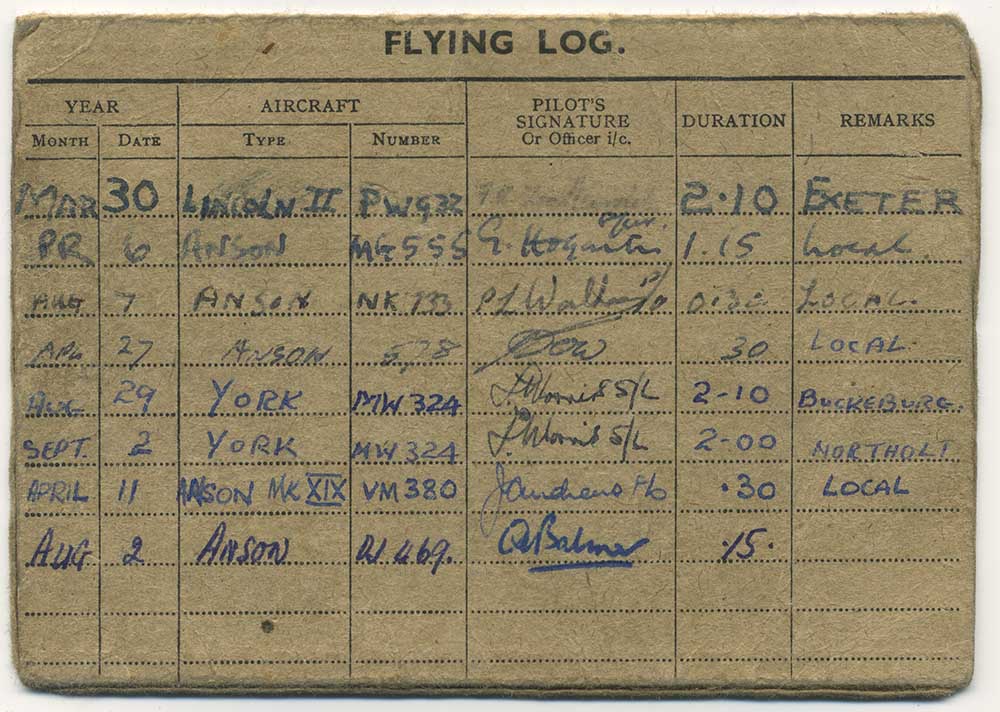 FLYING LOG.
YEAR AIRCRAFT PILOT'S SIGNATURE Or Officer i/c. DURATION REMARKS
MONTH DATE TYPE NUMBER
MAR 30 LINCOLN II PW932 2.10 EXETER
PR 6 ANSON MG555 G. 1.15 Local.
AUG 7 ANSON NK 733 0.30 LOCAL.
APL 27 ANSON Dow 30 LOCAL.
AUG 29 YORK MW324 Morris S/L 2-10 BUCKEBURG.
SEPT. 2 YORK MW324 Morris S/L 2-00 NORTHOLT
APRIL 11 ANSON MK XIX VM380 J Andrews .30 LOCAL
AUG 2 ANSON 469. Balmer .15.